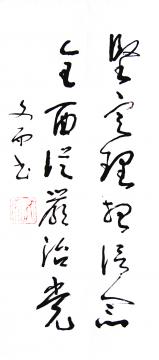 坚定理想信念
全面从严治党
文而书